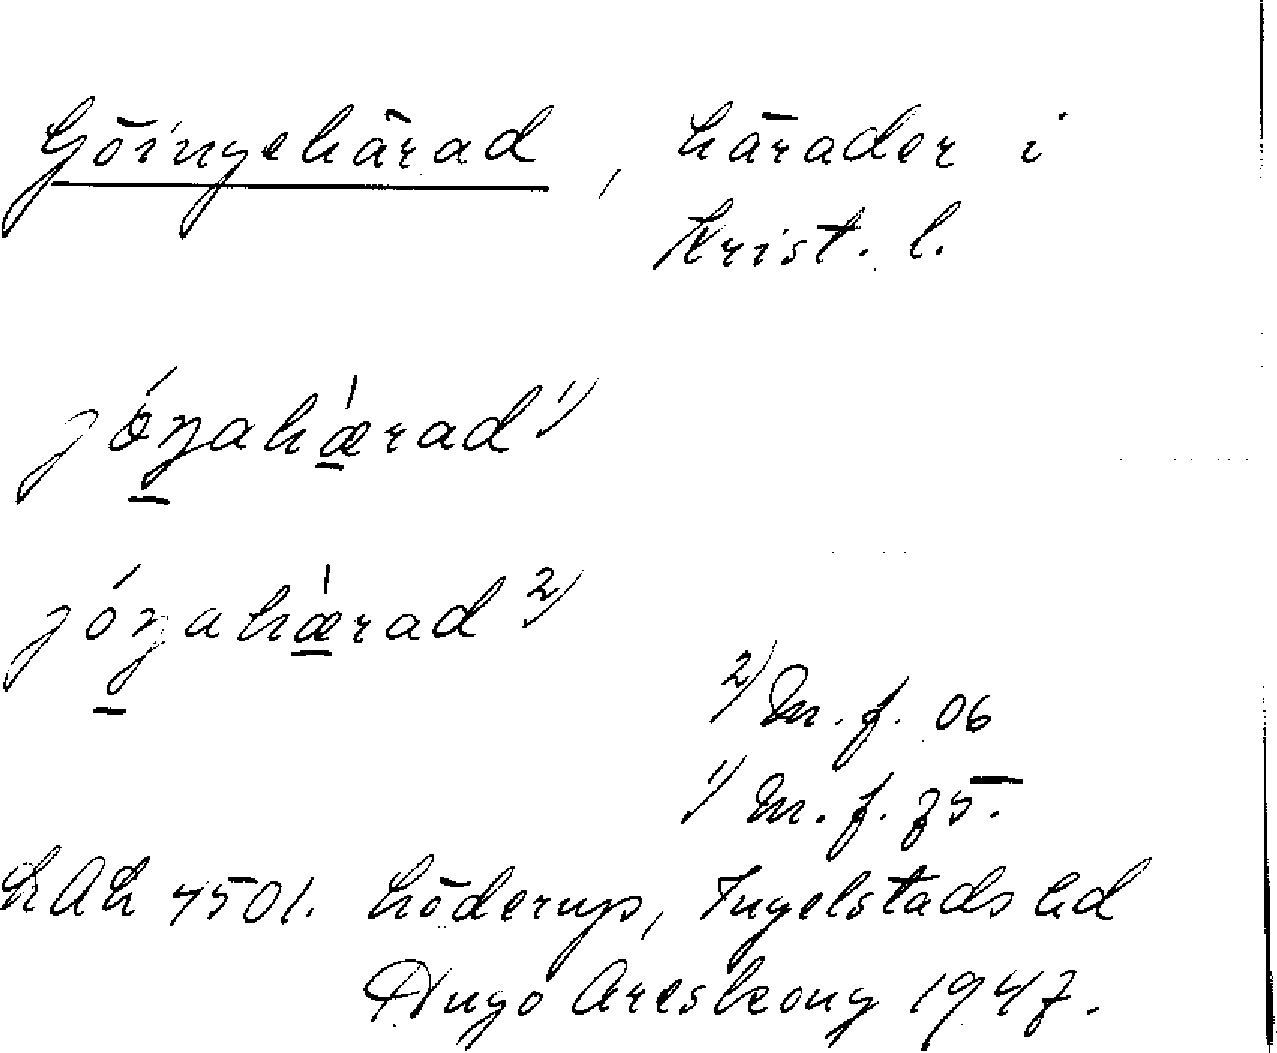 Göingehärad, härader i
Krist. l.
jǿŋahæ̲̍rad 1)
jóŋahæ̲̍rad 2)
2) M. f. 06
1) M. f. 75.
LAL 4501. Löderup, Ingelstads hd
Hugo Areskoug 1947.